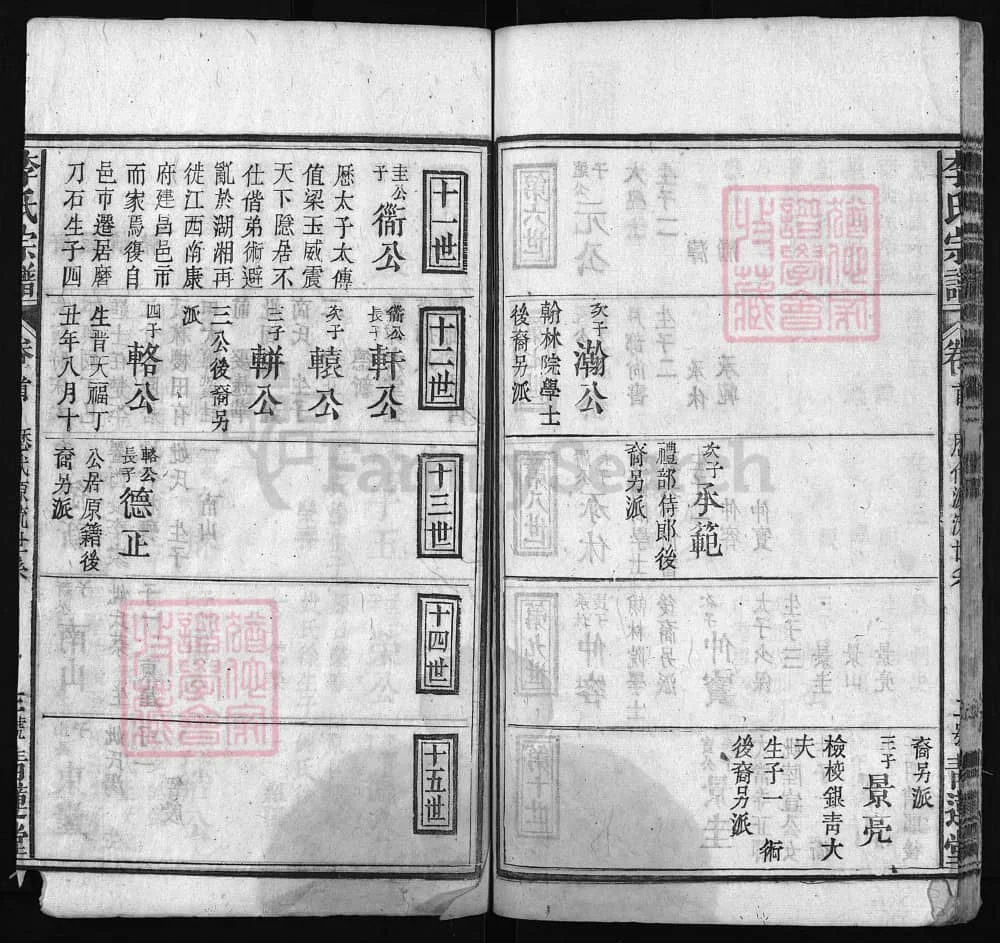 李氏宗譜
卷首
次子瀚公
翰林院學士
後裔另派
次子承範
禮部侍郎後
裔另派
裔另派
三子景亮
檢校銀青大
夫
生子一 術
後裔另派
十一世
圭公子衕公
歷太子太傅
值梁玉威震
天下隱居不
仕偕弟術避
亂於湖湘再
徙江西南康
府建昌邑市
而家焉復自
邑市遷居磨
刀石生子四
十二世
長子軒公
次子轅公
三子輧公
三公後裔另
派
四子輅公
生晉天福丁
丑年八月十
十三世
輅公長子德正
公居原籍後
裔另派
十四世
十五世
李氏宗譜
卷首
歷代源流世系
青蓮堂
FamilySearch